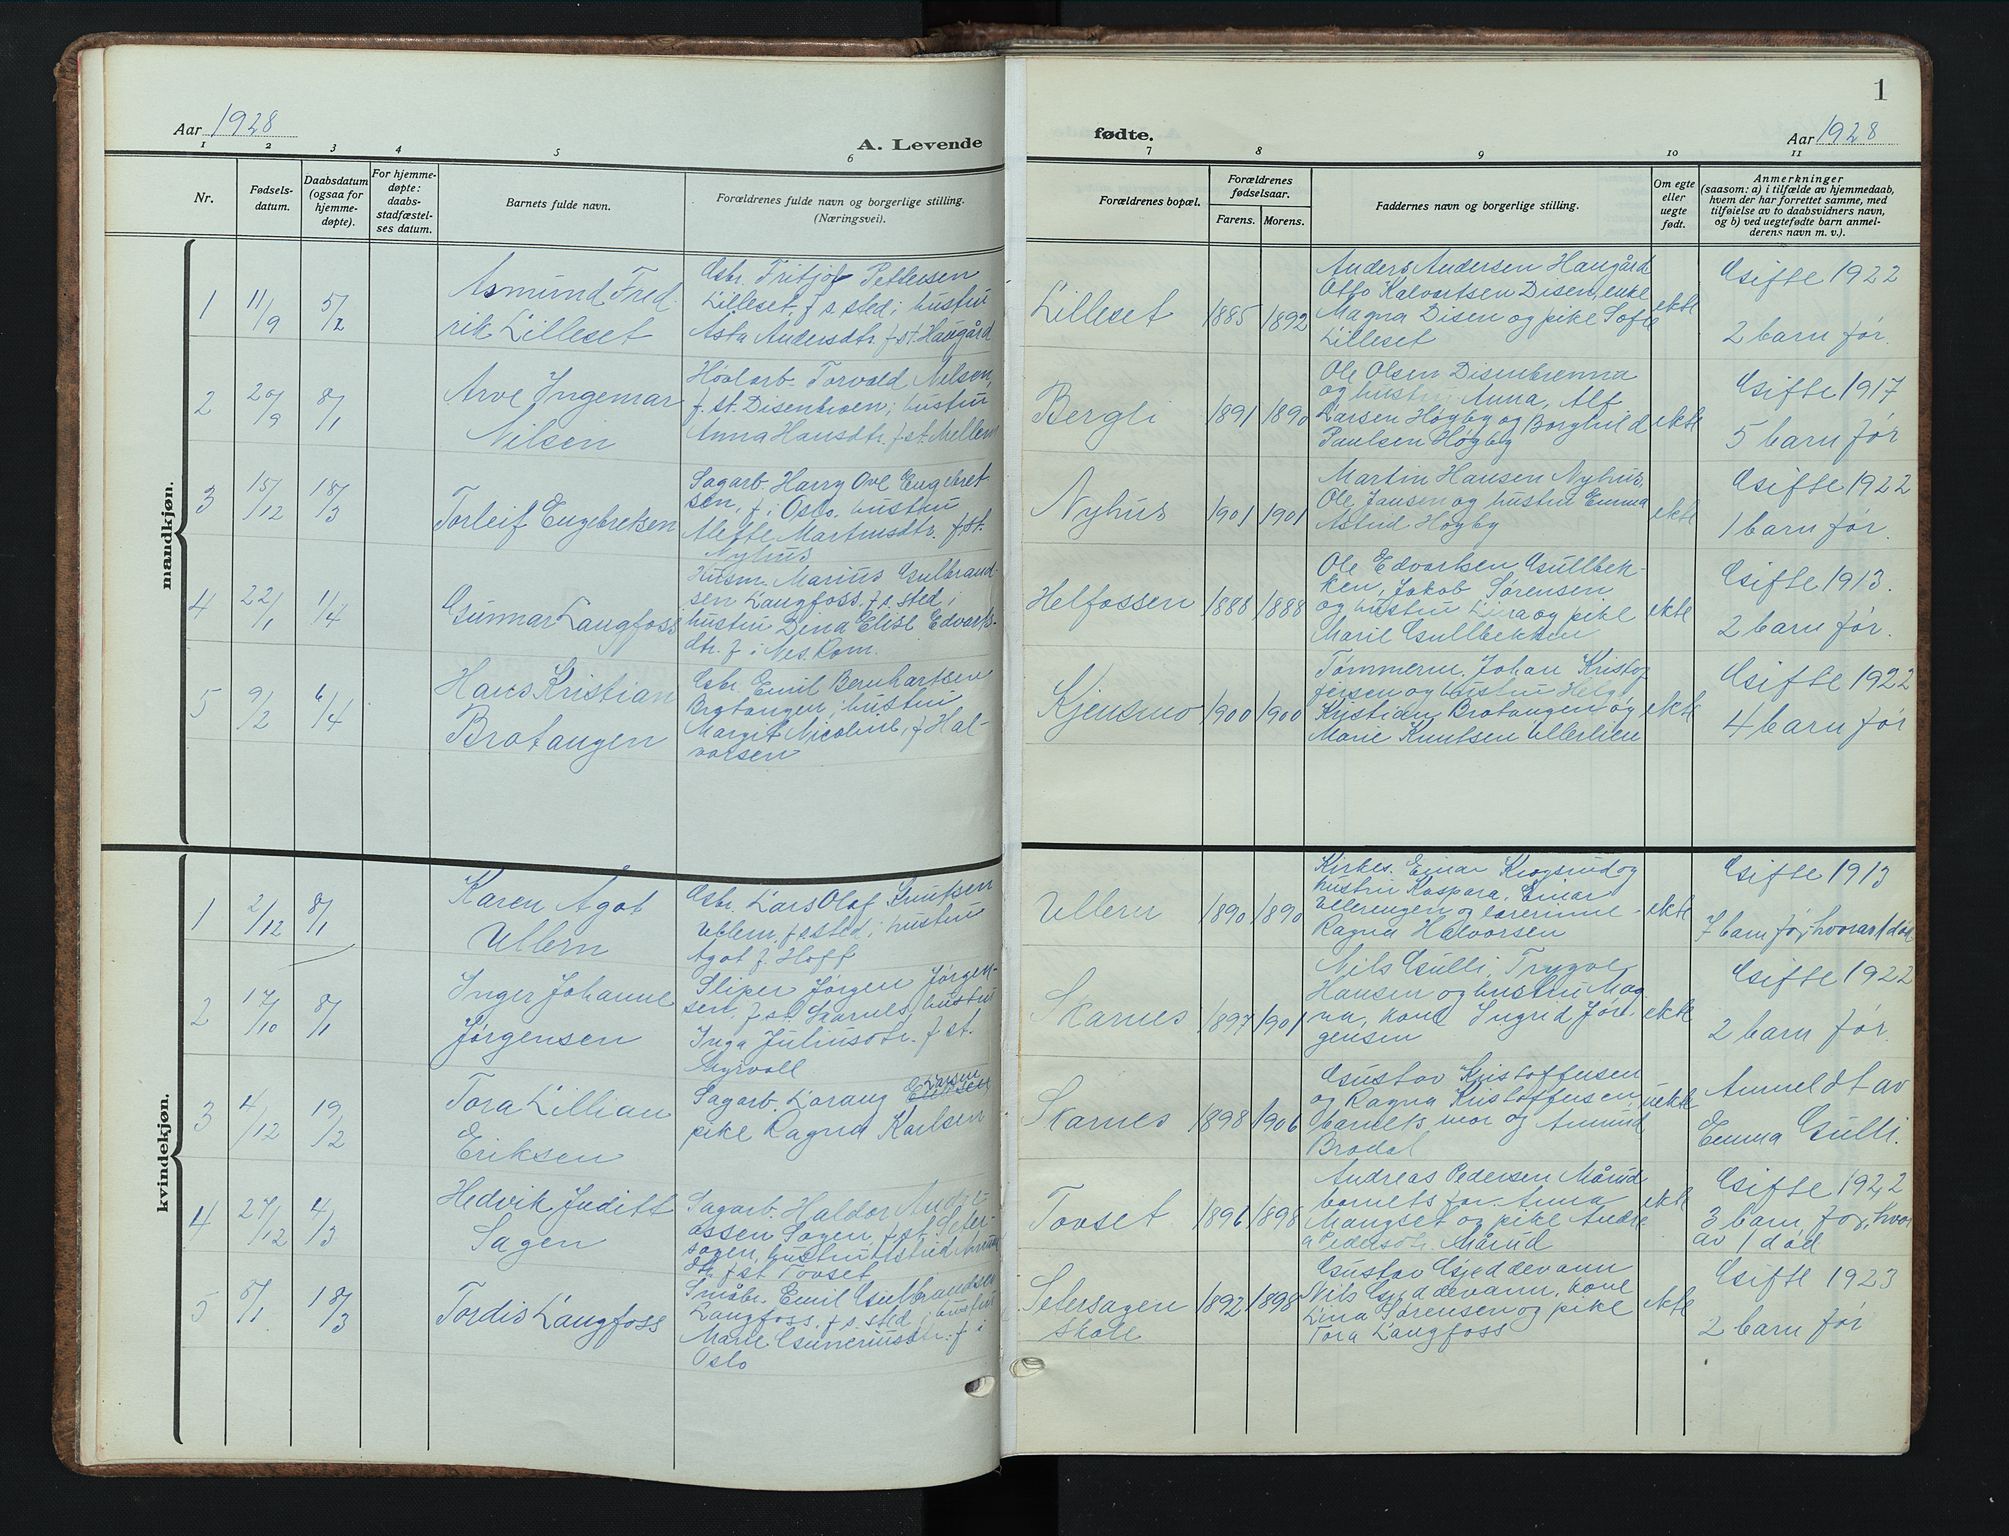 Aar 1928
A. Levende
1 2 3 4 5 6
Nr.
Fødsels-
datum.
Daabsdatum
(ogsaa for
hjemme-
døpte).
For hjemme-
døpte:
daabs-
stadfæstel-
ses datum.
Barnets fulde navn.
Forældrenes fulde navn og borgerlige stilling.
(Næringsvei).
mandkjøn.
1
11/9
5/2
Asmund Fred-
rik Lilleset
Gsbr. Fritjof Pettersen
Lilleset, f s. sted; hustru
Asta Andersdtr. f st. Haugård
2
20/9
8/1
Arve Ingemar
Nilsen
Høvlarb. Torvald Nilsen,
f. st. Disenbroen; hustru
Anna Hansdtr. f st. Mellem
3
15/12
18/3
Torleif Engebretsen
Sagarb. Harry Ove Engebret
sen, f. i Oslo. hustru
Alette Martinsdtr. f st.
Nyhus
4
22/1
1/4
Gunnar Langfoss
Husm. Marius Gulbrand-
sen Langfoss. f. s. sted;
hustru Dina Elise Edvarts-
dtr. f i Nes. Rom.
5
9/2
6/4
Hans Kristian
Brotangen
Gsbr. Emil Bernhartsen
Brotangen; hustru
Margit Nicoline, f. Hal-
vorsen
kvindekjøn.
1
2/12
8/1
Karen Agot
Ullern
Gsbr. Lars Olaf Knutsen
Ullern, f s sted; hustru
Agot f. Hoff
2
17/10
8/1
Inger Johanne
Jørgensen
Sliper Jørgen Jørgen-
sen, f. st. Skarnes, hustru
Inga Juliusdtr. f st.
Myrvoll
3
4/12
19/2
Tora Lillian
Eriksen
Larsen
Sagarb. Lorang
pike Ragna Karlsen
4
27/12
4/3
Hedvik Juditt
Sagen
Sagarb. Haldor Andre-
assen Sagen, f st. Seter-
sagen, hustru
dtr. f st Tovset
5
8/1
18/3
Tordis Langfoss
Småbr. Emil Gulbrandsen
Langfoss. f. s. sted; hustru
Marie Guneriusdtr. f i
Oslo
1
fødte.
Aar 1928
7 8 9 10 11
Forældrenes bopæl.
Forældrenes
fødselsaar.
Farens. Morens.
Faddernes navn og borgerlige stilling.
Om egte
eller
uegte
født.
Anmerkninger
(saasom: a) i tilfælde av hjemmedaab,
hvem der har forrettet samme, med
tilføielse av to daabsvidners navn,
og b) ved uegtefødte barn anmel-
derens navn m. v.).
Lilleset
1885 1892
Anders Andersen Haugård
Otto Kalvartsen Disen, enke
Magna Disen og pike Sofie
Lilleset
ekte
Gifte 1922
2 barn før.
Bergli
1891 1890
Ole Olsen Disenbrenna
og hustru Anna, Alf
Larsen Høgby og Borghild
Paulsen Høgby
ekte
Gifte 1917
5 barn før
Nyhus
1901 1901
Martin Hansen Nyhus,
Ole Jansen og hustru Emma
Astrid Høgby
ekte
Gifte 1922
1 barn før.
Helfossen
1888 1888
Ole Edvartsen Gullbek-
ken, Jakob Sørensen
og hustru Lina og pike
Marie Gullbekken
ekte
Gifte 1913.
2 barn før.
Kjensmo
1900 1900
Tømmerm. Johan Kristof
fersen og hustru Helga
Kristian Brotangen og
Marie Knutsen Ullerlien
ekte
Gifte 1922
4 barn før
Ullern
1890 1890
Kirkes. Einar Krogsrud og
hustru Kaspara, Einar
Ullerengen og lærerinne
Ragna Halvorsen
ekte
Gifte 1913
7 barn før, hvorav 1 død
Skarnes
1897 1901
Nils Gulli, Trygve
Hansen og hustru Mag
na, kone Ingrid Jør-
gensen
ekte
Gifte 1922
2 barn før.
Skarnes
1898 1906
Gustav Kristoffersen
og Ragna Kristoffersen,
barnets mor og Amund
Brodal
uekte
Anmeldt av
Emma Gulli.
Tovset
1896 1898
Andreas Pedersen Mårud
barnets far. Anna
Mangset og pike Andre
a Pedersdtr. Mårud
ekte
Gifte 1922
3 barn før, hvor
av 1 død
Setersagen
skole
1892 1898
Gustav Gjeddevann
Nils Gjeddevann, kone
Lina Sørensen og pike
Tora Langfoss
ekte
Gifte 1923
2 barn før